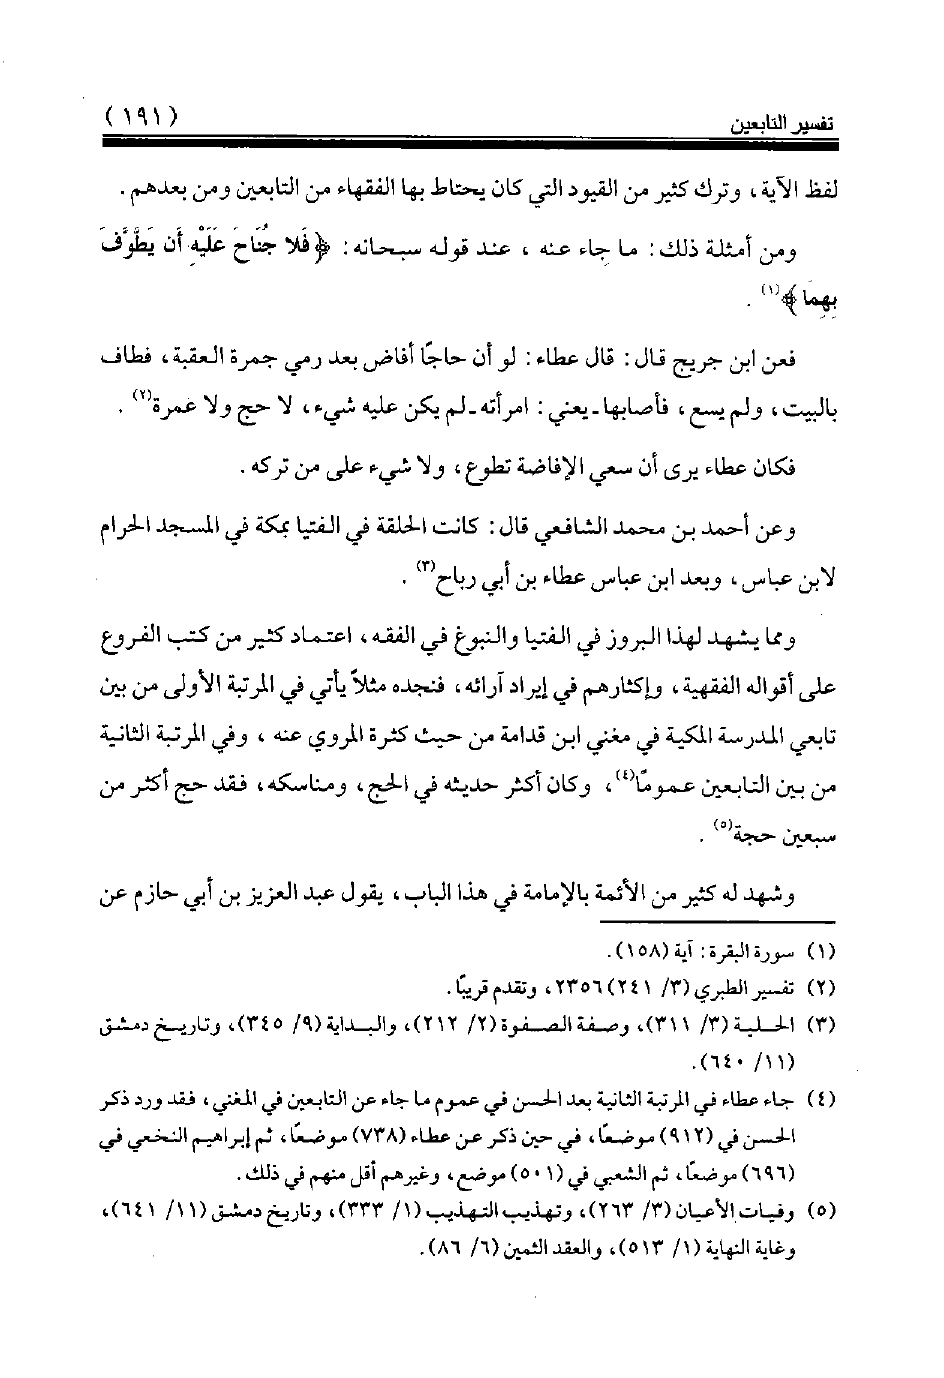 تفسير التابعين (١٩١)
لفظ الآية، وترك كثير من القيود التي كان يحتاط بها الفقهاء من التابعين ومن بعدهم.
ومن أمثلة ذلك: ما جاء عنه، عند قوله سبحانه: ﴿فَلا جُنَاحَ عَلَيْهِ أَن يَطَّوَّفَ
بِهِمَا﴾(١).
فعن ابن جريج قال: قال عطاء: لو أن حاجًا أفاض بعد رمي جمرة العقبة، فطاف
بالبيت، ولم يسع، فأصابها ـ يعني: امرأته ـ لم يكن عليه شيء، لا حج ولا عمرة(٢).
فكان عطاء يرى أن سعي الإفاضة تطوع، ولا شيء على من تركه.
وعن أحمد بن محمد الشافعي قال: كانت الحلقة في الفتيا بمكة في المسجد الحرام
لابن عباس، وبعد ابن عباس عطاء بن أبي رباح(٣).
ومما يشهد لهذا البروز في الفتيا والنبوغ في الفقه، اعتماد كثير من كتب الفروع
على أقواله الفقهية، وإكثارهم في إيراد آرائه، فنجده مثلاً يأتي في المرتبة الأولى من بين
تابعي المدرسة المكية في مغني ابن قدامة من حيث كثرة المروي عنه، وفي المرتبة الثانية
من بين التابعين عمومًا(٤)، وكان أكثر حديثه في الحج، ومناسكه، فقد حج أكثر من
سبعين حجة(٥).
وشهد له كثير من الأئمة بالإمامة في هذا الباب، يقول عبد العزيز بن أبي حازم عن
(١) سورة البقرة: آية (١٥٨).
(٢) تفسير الطبري (٣/ ٢٤١) ٢٣٥٦، وتقدم قريبًا.
(٣) الحلية (٣/ ٣١١)، وصفة الصفوة (٢/ ٢١٢)، والبداية (٩/ ٣٤٥)، وتاريخ دمشق
(١١/ ٦٤٠).
(٤) جاء عطاء في المرتبة الثانية بعد الحسن في عموم ما جاء عن التابعين في المغني، فقد ورد ذكر
الحسن في (٩١٢) موضعًا، في حين ذكر عن عطاء (٧٣٨) موضعًا، ثم إبراهيم النخعي في
(٦٩٦) موضعًا، ثم الشعبي في (٥٠١) موضع، وغيرهم أقل منهم في ذلك.
(٥) وفيات الأعيان (٣/ ٢٦٣)، وتهذيب التهذيب (١/ ٣٣٣)، وتاريخ دمشق (١١/ ٦٤١)،
وغاية النهاية (١/ ٥١٣)، والعقد الثمين (٦/ ٨٦).